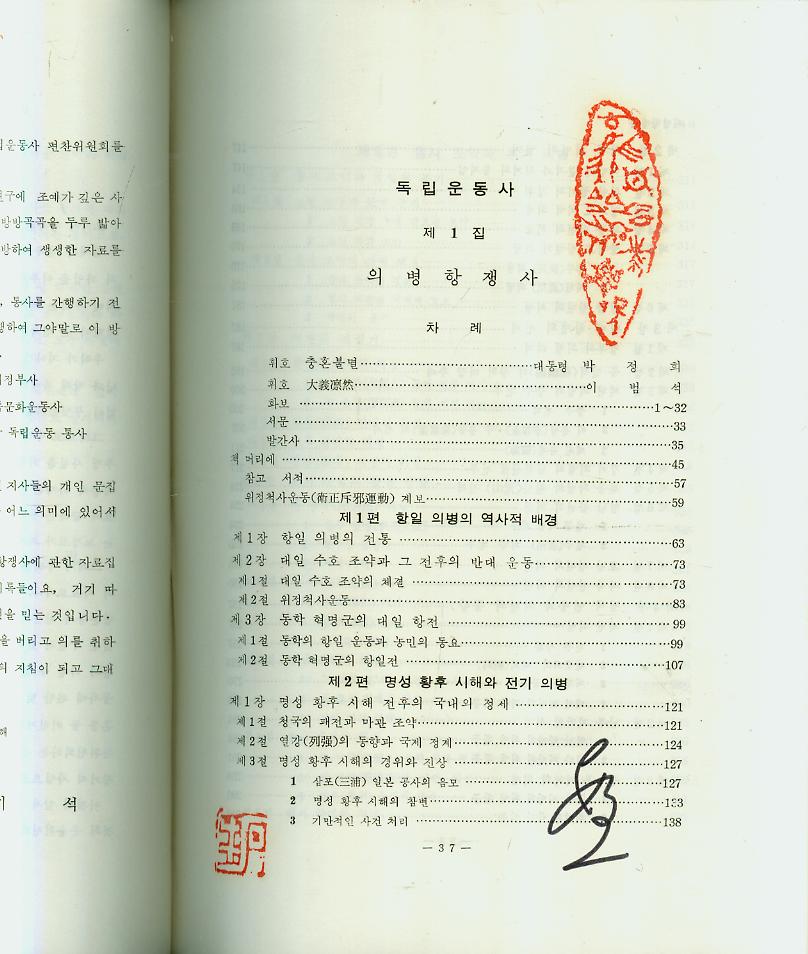 립운동사 편찬위원회를
구에 조예가 깊은 사
방방곡곡을 두루 밟아
방하여 생생한 자료를
, 동사를 간행하기 전
하여 그야말로 이 방
정부사
문화운동사
독립운동 통사
지사들의 개인 문집
어느 의미에 있어서
항쟁사에 관한 자료집
록들이요, 거기 따
을 믿는 것입니다.
을 버리고 의를 취하
의 지침이 되고 그대
해
석
독립운동사
제 1 집
의 병 항 쟁 사
차 례
휘호 충혼불멸……………대통령 박 정 희
휘호 大義凛然……………이 범 석
화보 ……………1~32
서문……………33
발간사 ……………35
책 머리에 ……………45
참고 서적……………57
위정척사운동(衛正斥邪運動) 계보……………59
제1편 항일 의병의 역사적 배경
제1장 항일 의병의 전통 ……………63
제2장 대일 수호 조약과 그 전후의 반대 운동……………73
제1절 대일 수호 조약의 체결 ……………73
제2절 위정척사운동……………83
제3장 동학 혁명군의 대일 항전 ……………99
제1절 동학의 항일 운동과 농민의 동요……………99
제2절 동학 혁명군의 항일전 ……………107
제2편 명성 황후 시해와 전기 의병
제1장 명성 황후 시해 전후의 국내의 정세 ……………121
제1절 청국의 패전과 마관 조약……………121
제2절 열강(列强)의 동향과 국제 정계……………124
제3절 명성 황후 시해의 경위와 진상 ……………127
1 삼포(三浦) 일본 공사의 음모 ……………127
2 명성 황후 시해의 참변……………133
3 기만적인 사건 처리 ……………138
— 3 7 —